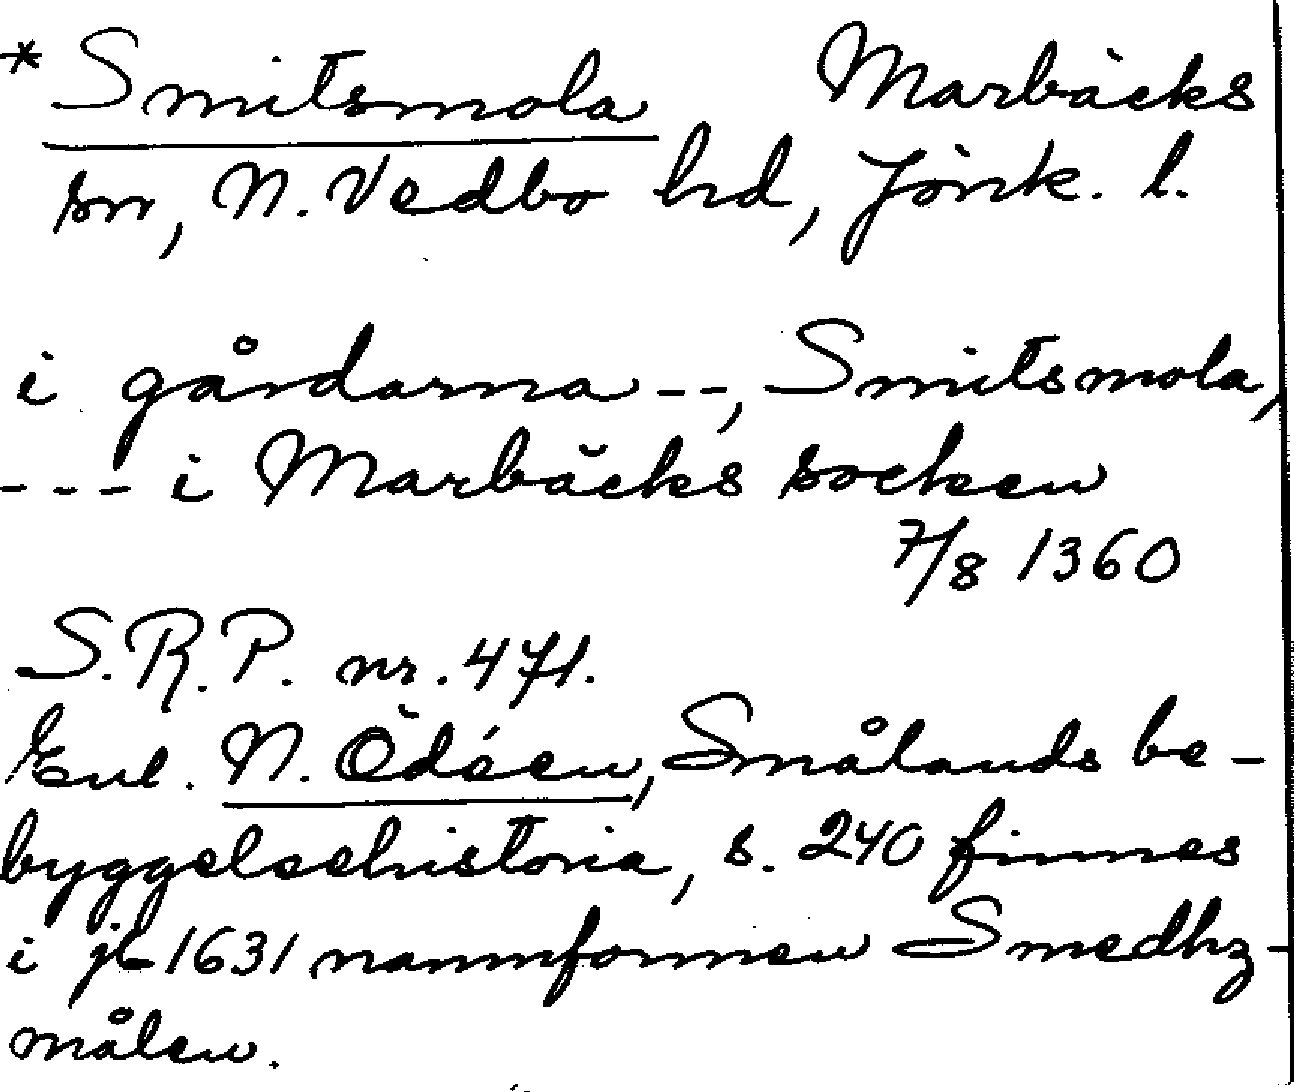 * Smitsmola Marbäcks
sn, N. Vedbo hd, Jönk. l.
i gårdarna --, Smitsmola,
--- i Marbäcks socken
7/8 1360
S.R.P. nr. 471.
Enl. N. Ödéen, Smålands be-
byggelsehistoria, s. 240 finnes
i jb 1631 namnformen Smedhz-
målen.